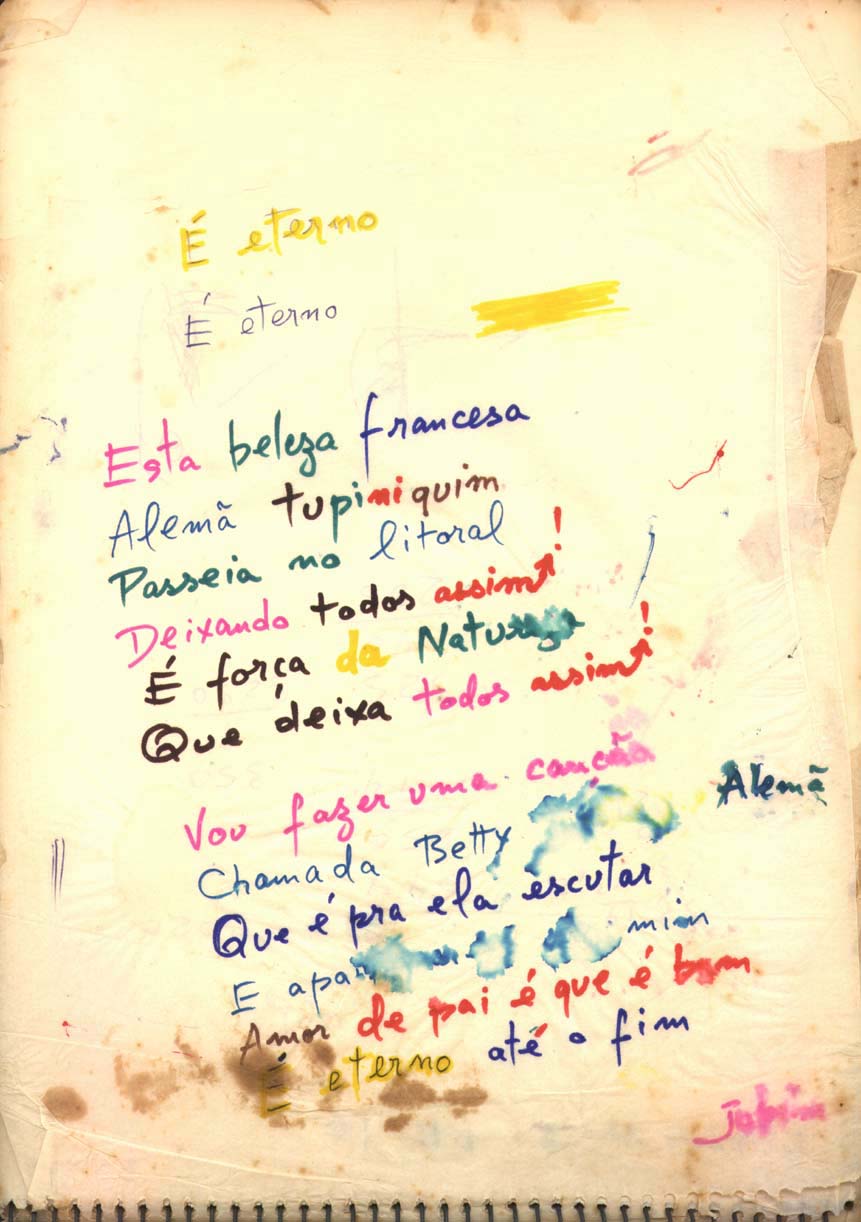 É eterno
É eterno
Esta beleza francesa
Alemã tupiniquim
Passeia no litoral
Deixando todos assim!
É força da Natureza
Que deixa todos assim!
Vou fazer uma canção
Chamada Betty Alemã
Que é pra ela escutar
E mim
Amor de pai é que é bom
É eterno até o fim
Jobim